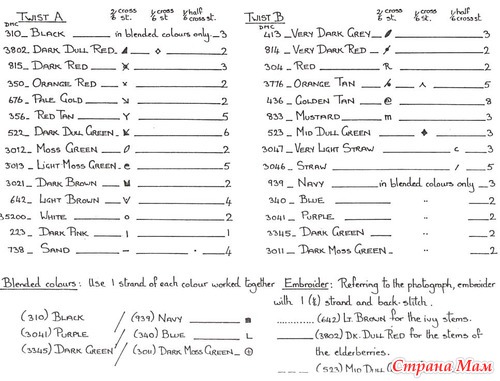 TWIST A 2/cross 6 st. 1/cross 6 st. 1/half 6 cross st.
DMC
310_ BLACK in blended colours only_3
3802_ DARK DULL RED 2
815_ DARK RED 3
350_ ORANGE RED 2
676_ PALE GOLD 2
356_ RED TAN Y 5
522_ DARK DULL GREEN 6
3012_ MOSS GREEN 2
3013_ LIGHT MOSS GREEN_ e 5
3021_ DARK BROWN 2
642_ LIGHT BROWN V 4
35200_ WHITE o 2
223_ DARK PINK ı 1
738_ SAND - · 4
TWIST B 2/cross 6 st. 1/cross 6 st. 1/half 6 cross st.
DMC
413_ VERY DARK GREY 3
814_ VERY DARK RED 2
304_ RED R 2
3776_ ORANGE TAN % ʌ 5
436_ GOLDEN TAN @ 8
833_ MUSTARD m 3
523_ MID DULL GREEN ♦ 3
3047_ VERY LIGHT STRAW c 3
3046_ STRAW / 5
939_ NAVY in blended colours only 3
340_ BLUE " 2
3041_ PURPLE " 2
3345_ DARK GREEN " 2
3011_ DARK MOSS GREEN " 2
Blended colours: USE 1 STRAND OF EACH COLOUR WORKED TOGETHER
(310) BLACK / (939) NAVY ■
(3041) PURPLE / (340) BLUE L
(3345) DARK GREEN / (3011) DARK MOSS GREEN_ ⊕
Embroider: REFERRING TO THE PHOTOGRAPH, EMBROIDER
WITH 1 (6) STRAND AND BACK-STITCH.
............ (642) LT. BROWN FOR THE IVY STEMS.
______ (3802) DK. DULL RED FOR THE STEMS OF
THE ELDERBERRIES.
(523) MID DULL
Страна Мам